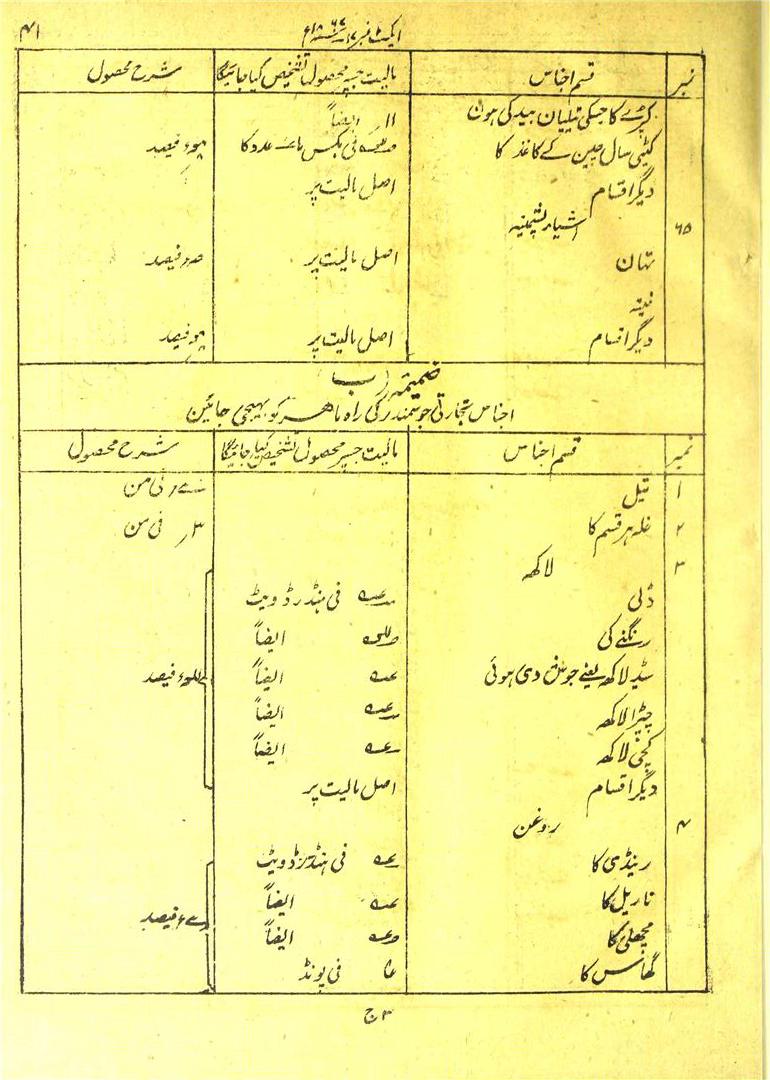 ایکٹ نمبر ۱۷ ۱۸۶۷ء ۴۱
نمبر قسم اجناس مالیت جسپر محصول تشخیص کیا جائیگا شرح محصول
کپڑے کا جسکی تیلیاں بید کی ہون ۱۱ ایضاً
کٹیی سال چین کے کاغذ کا فی بکس عدد کا فیصد
دیگر اقسام اصل مالیت پر
۶۵ اشیاء پشمینہ
تھان اصل مالیت پر فیصد
فیتہ
دیگر اقسام اصل مالیت پر فیصد
ضمیمہ (ب)
اجناس تجارتی جو سمندر کی راہ باہر کو بھیجی جائین
نمبر قسم اجناس مالیت جسپر محصول تشخیص کیا جائیگا شرح محصول
۱ تیل فی من
۲ غلہ ہر قسم کا ۳ر فی من
۳ لاکھ
ڈلی فی ہنڈرڈ ویٹ
رنگنے کی ایضاً
سڈ لاکھ یعنے جوش دی ہوئی ایضاً فیصد
چپڑا لاکھ ایضاً
کچی لاکھ ایضاً
دیگر اقسام اصل مالیت پر
۴ روغن
رینڈی کا فی ہنڈرڈ ویٹ
ناریل کا ایضاً فیصد
مچھلی کا ایضاً
گھانس کا فی پونڈ
۳ ج